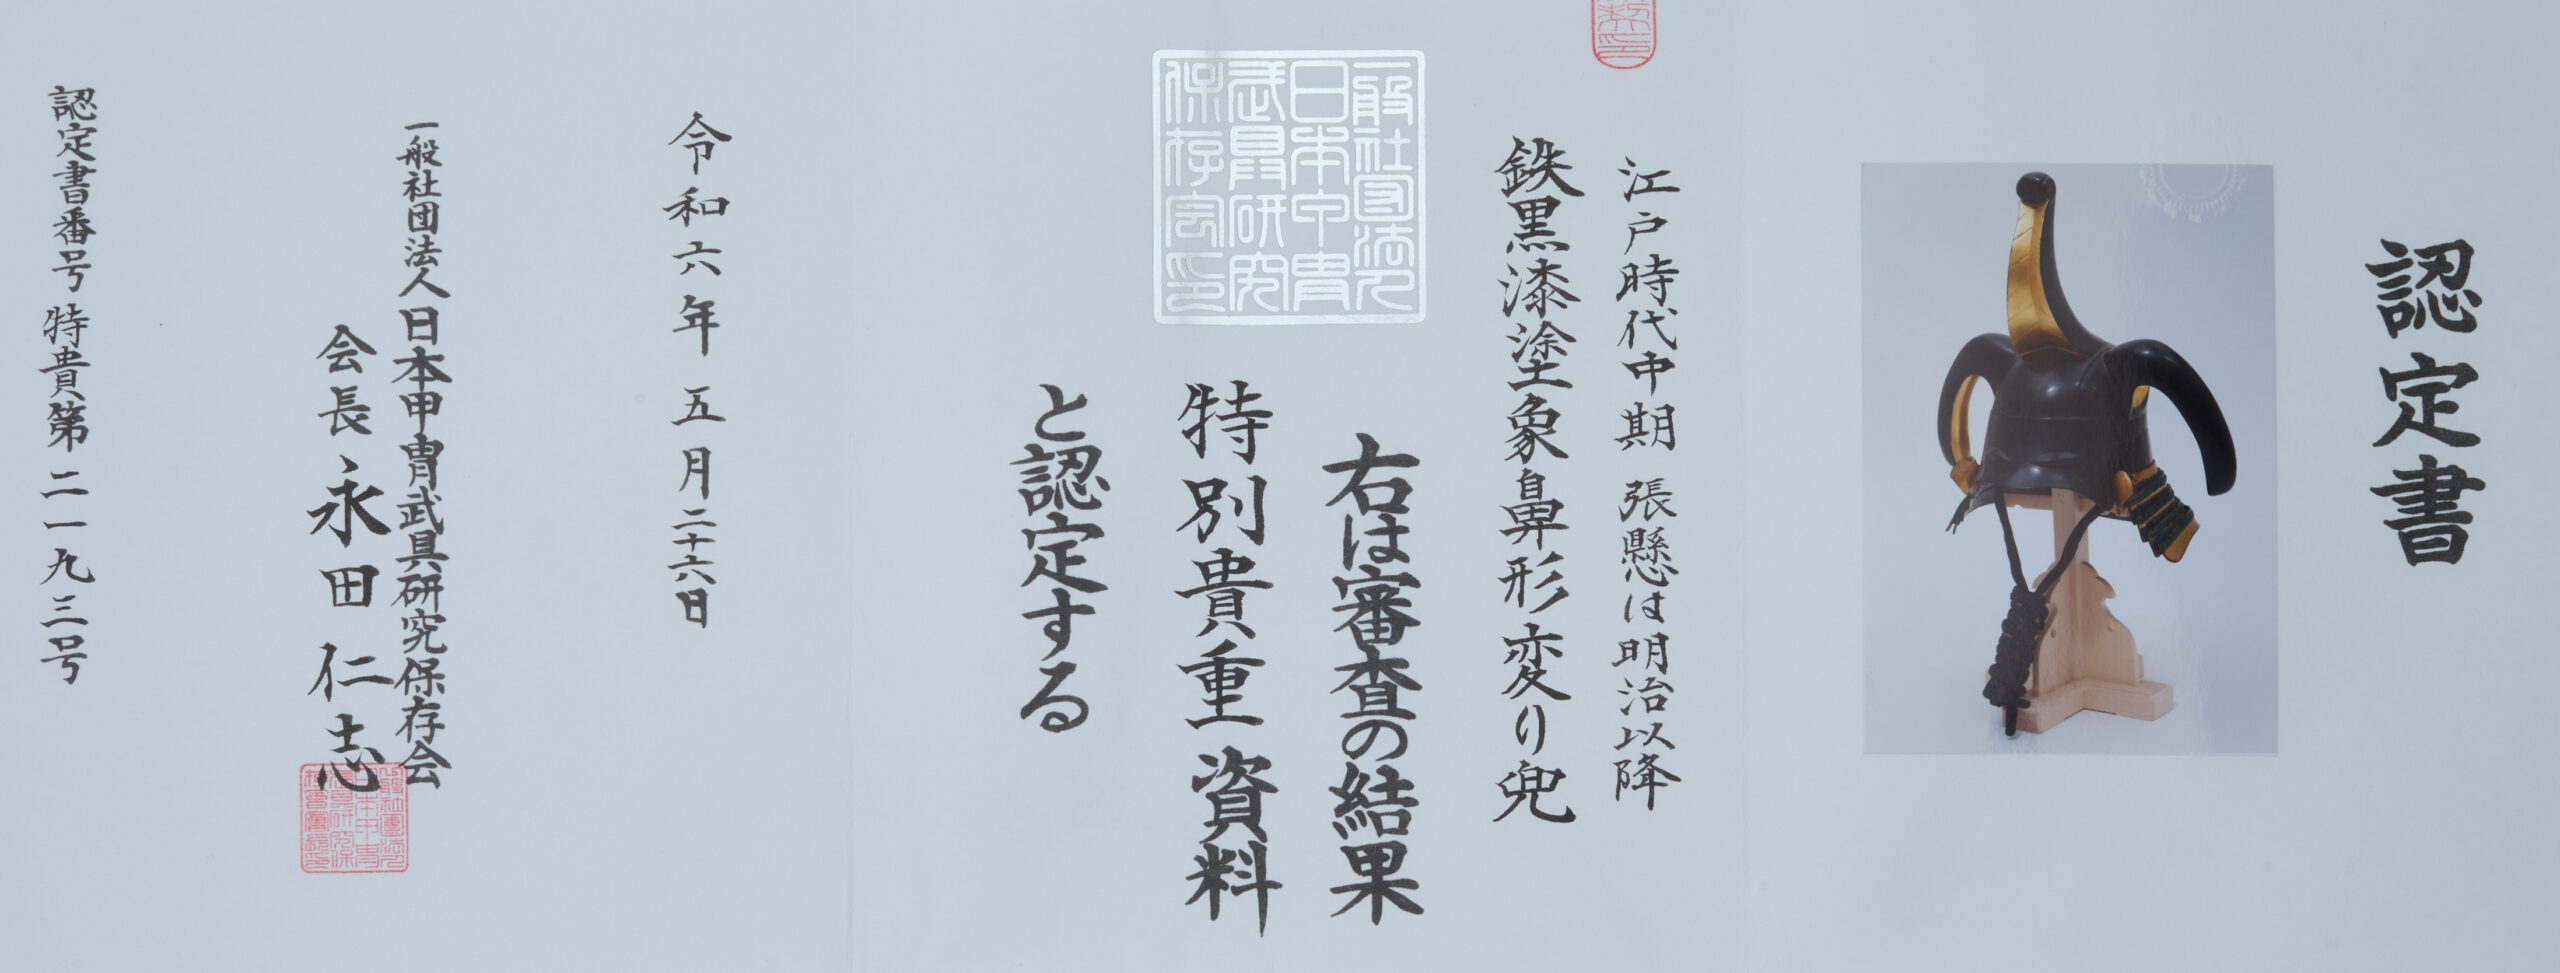 認定書
江戸時代中期 張懸は明治以降
鉄黒漆塗象鼻形変り兜
右は審査の結果
特別貴重資料
と認定する
一般社団法人日本甲冑武具研究保存会印
令和六年五月二十六日
一般社団法人日本甲冑武具研究保存会
会長 永田仁志
認定書番号 特貴第二一九三号